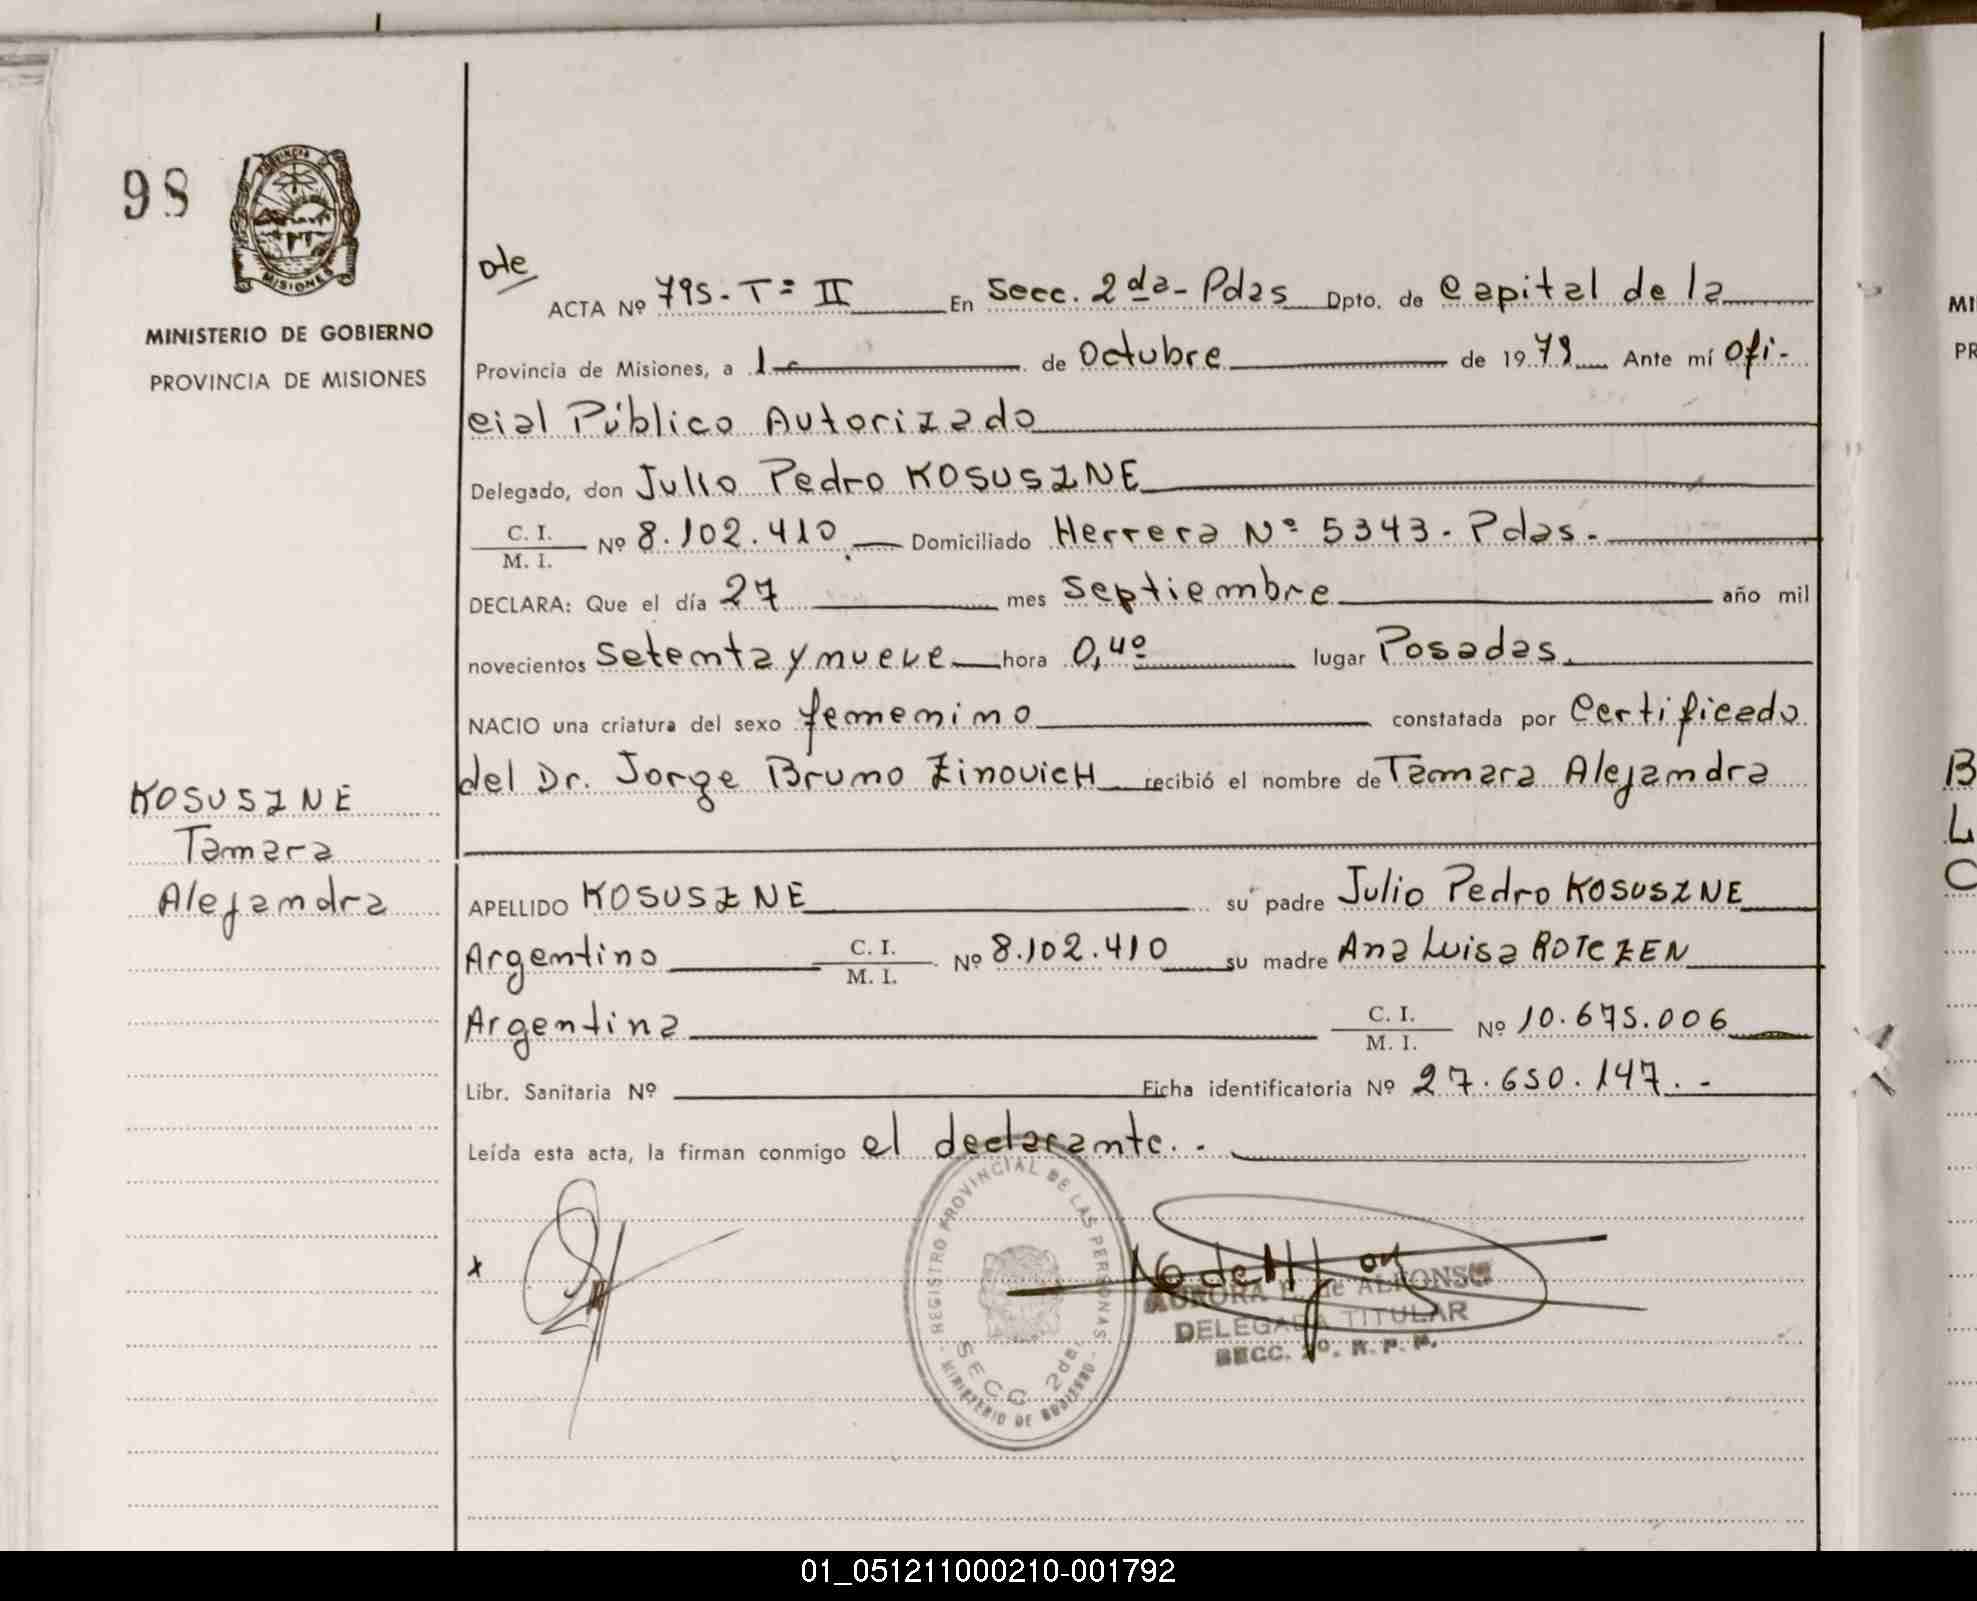 98
PROVINCIA DE
MISIONES
MINISTERIO DE GOBIERNO
PROVINCIA DE MISIONES
KOSUSZNE
Tamara
Alejandra
Dte
ACTA Nº 795 - Tº II En Secc. 2da - Pdas Dpto. de Capital de la
Provincia de Misiones, a 1º de Octubre de 1979 Ante mí Ofi-
cial Público Autorizado
Delegado, don Julio Pedro KOSUSZNE
C. I.
M. I. Nº 8.102.410 Domiciliado Herrera Nº 5343 - Pdas.
DECLARA: Que el día 27 mes Septiembre año mil
novecientos Setenta y nueve hora 0,40 lugar Posadas
NACIO una criatura del sexo femenino constatada por Certificado
del Dr. Jorge Bruno ZinovicH recibió el nombre de Tamara Alejandra
APELLIDO KOSUSZNE su padre Julio Pedro KOSUSZNE
Argentino C. I.
M. I. Nº 8.102.410 su madre Ana Luisa ROTCZEN
Argentina C. I.
M. I. Nº 10.675.006
Libr. Sanitaria Nº Ficha identificatoria Nº 27.650.147.-
Leída esta acta, la firman conmigo el declarante.-
x
REGISTRO PROVINCIAL DE LAS PERSONAS
SECC 2da.
MINISTERIO DE GOBIERNO
AURORA de ALFONSO
DELEGADA TITULAR
SECC. 2º. R. P. P.
MI
PR
B
L
C
01_051211000210-001792